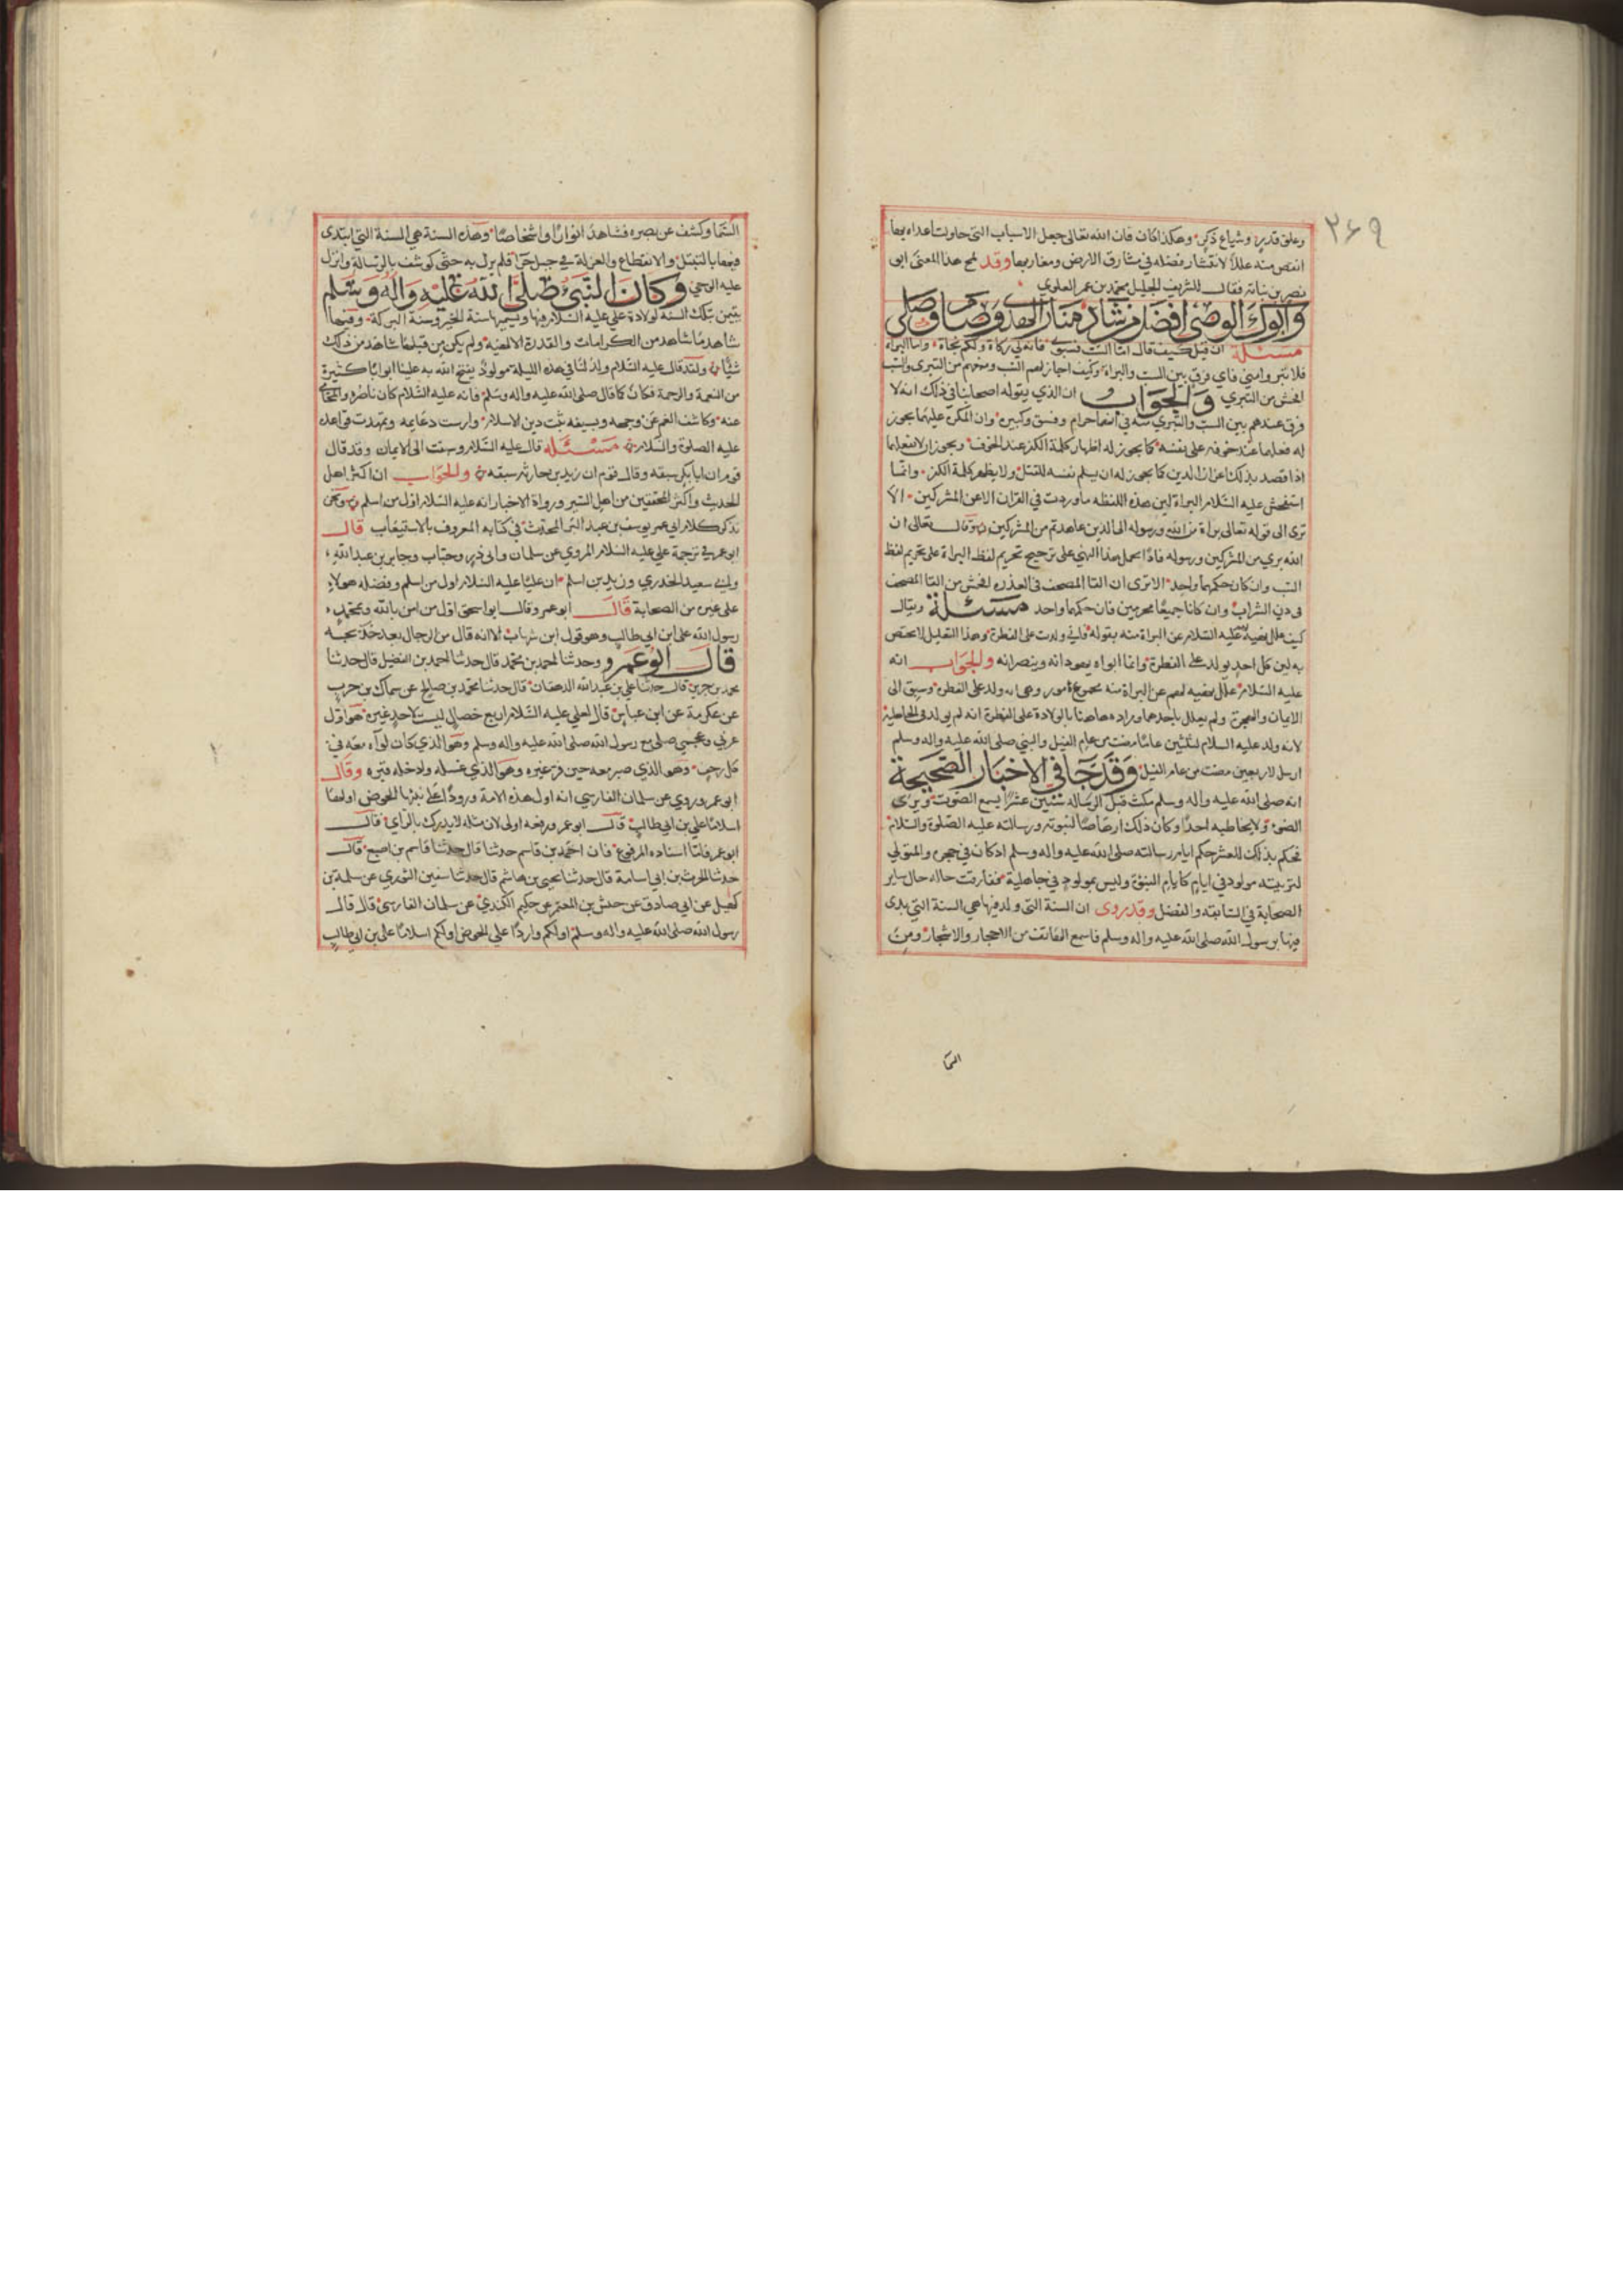 ٣٦٩
وعلو قدره وشياع ذكره وهكذا كان فان الله تعالى جعل الاسباب التي حاولت اعداءه بها
انقص منه عللا لانتشار فضله في مشارق الارض ومغاربها وقد لمح هذا المعنى ابو
نصر بن نباته فقال للشريف الجليل محمد بن عمر العلوي
وابوك الوصي افضل من شاد منار الهدى وصام وصلى
مسئلة ان قيل كيف قال اما السب فسبوني فانه لي زكاة ولكم نجاة واما البراه
فلا تتبروا مني فاي فرق بين السب والبراة وكيف اجاز لهم السب ومنعهم من التبري والسب
افحش من التبري والجواب ان الذي يقوله اصحابنا في ذلك انه لا
فرق عندهم بين السب والتبري منه في انهما حرام وفسق وكبيره وان المكره عليهما يجوز
له فعلهما عند خوفه على نفسه كما يجوز له اظهار كلمة الكفر عند الخوف ويجوز ان لا يفعلهما
اذا قصد بذلك اعزاز الدين كما يجوز له ان يسلم نفسه للقتل ولا يظهر كلمة الكفر وانما
استفحش عليه السلام البراة لان هذه اللفظه ما وردت في القران الا عن المشركين الا
ترى الى قوله تعالى براة من الله ورسوله الى الذين عاهدتم من المشركين وقال تعالى ان
الله بري من المشركين ورسوله فاذا يحمل هذا النهي على ترجيح تحريم لفظ البراة على تحريم لفظ
السب وان كان حكمهما واحد الا ترى ان القا المصحف في العذره افحش من القا المصحف
في دن الشراب وان كانا جميعا محرمين فان حكمهما واحد مسئلة ويقال
كيف علل نهيه لهم عليه السلام عن البراة منه بقوله فاني ولدت على الفطرة وهذا التعليل لا يختص
به لان كل احد يولد على الفطرة وانما ابواه يهودانه وينصرانه والجواب انه
عليه السلام علل نهيه لهم عن البراة منه بمجموع امور وهي انه ولد على الفطره وسبق الى
الايمان والهجرة ولم يعلل باحدهما ومراده هاهنا بالولادة على الفطرة انه لم يولد في الجاهلية
لانه ولد عليه السلام لثلثين عاما مضت من عام الفيل والنبي صلى الله عليه واله وسلم
ارسل لاربعين مضت من عام الفيل وقد جا في الاخبار الصحيحة
انه صلى الله عليه واله وسلم مكث قبل الرساله سنين عشرا يسمع الصوت ويرى
الضوء ولا يخاطبه احدا وكان ذلك ارهاصا لنبوته ورسالته عليه الصلوة والسلام
فحكم بذلك العشر حكم ايام رسالته صلى الله عليه واله وسلم اذ كان في حجره والمتولي
لتربيته مولود في ايام كايام النبوة وليس بمولود في جاهلية ففارقت حاله حال ساير
الصحابة في السابقه والفضل وقد روى ان السنة التي ولد فيها هي السنة التي بدى
فيها برسول الله صلى الله عليه واله وسلم فاسمع الهاتف من الاحجار والاشجار ومن
السما
السما وكشف عن بصره فشاهد انوارا واشخاصا وهذه السنة هي السنة التي ابتدى
فيها بالتبتل والانقطاع والعزلة في جبل حرا فلم يزل به حتى كوشف بالرسالة وانزل
عليه الوحي وكان النبي صلى الله عليه واله وسلم
يتيمن بتلك السنه لولادة علي عليه السلام فيها ويسميها سنة الخير وسنة البركة وفيها
شاهد ما شاهد من الكرامات والقدرة الالهيه ولم يكن من قبلها شاهد من ذلك
شيا ولقد قال عليه السلام ولد لنا في هذه الليلة مولود يفتح الله به علينا ابوابا كثيرة
من النعمة والرحمة فكان كما قال صلى الله عليه واله وسلم فانه عليه السلام كان ناصره والمحامي
عنه وكاشف الغم عن وجهه وبسيفه ثبت دين الاسلام وارست دعايمه وتمهدت قواعده
عليه الصلوة والسلام مسئلة قال عليه السلام وسبقت الى الايمان وقد قال
قوم ان ابا بكر سبقه وقال قوم ان زيد بن حارثه سبقه والجواب ان اكثر اهل
الحديث واكثر المحققين من اهل السير ورواة الاخبار انه عليه السلام اول من اسلم ونحن
نذكر كلام ابي عمر يوسف بن عبد البر المحدث في كتابه المعروف بالاستيعاب قال
ابو عمر في ترجمة علي عليه السلام المروي عن سلمان وابي ذر وخباب وجابر بن عبد الله
وابي سعيد الخدري وزيد بن اسلم ان عليا عليه السلام اول من اسلم وفضله هولاء
على غيره من الصحابة قال ابو عمر وقال ابو اسحق اول من امن بالله وبمحمد
رسول الله علي ابن ابي طالب وهو قول ابن شهاب الا انه قال من الرجال بعد خديجه
قال ابو عمر وحدثنا احمد بن محمد قال حدثنا احمد بن الفضيل قال حدثنا
محمد بن جرير قال حدثنا علي بن عبد الله الدهقان قال حدثنا محمد بن صالح عن سماك بن حرب
عن عكرمة عن ابن عباس قال لعلي عليه السلام اربع خصال ليست لاحد غيره هو اول
عربي وعجمي صلى مع رسول الله صلى الله عليه واله وسلم وهو الذي كان لواه معه في
كل زحف وهو الذي صبر معه حين فر غيره وهو الذي غسله وادخله قبره وقال
ابو عمر وروي عن سلمان الفارسي انه اول هذه الامة ورودا على نبيها الحوض اولها
اسلاما علي بن ابي طالب قال ابو عمر ورفعه اولى لان مثله لا يدرك بالراي قال
ابو عمر فاما اسناده المرفوع فان احمد بن قاسم حدثنا قال حدثنا قاسم بن اصبغ قال
حدثنا الحرث بن ابي اسامة قال حدثنا يحيى بن هاشم قال حدثنا سفين الثوري عن سلمة بن
كهيل عن ابي صادق عن حنش بن المعتمر عن حكيم الكندي عن سلمان الفارسي قال قال
رسول الله صلى الله عليه واله وسلم اولكم واردا علي الحوض اولكم اسلاما علي بن ابي طالب